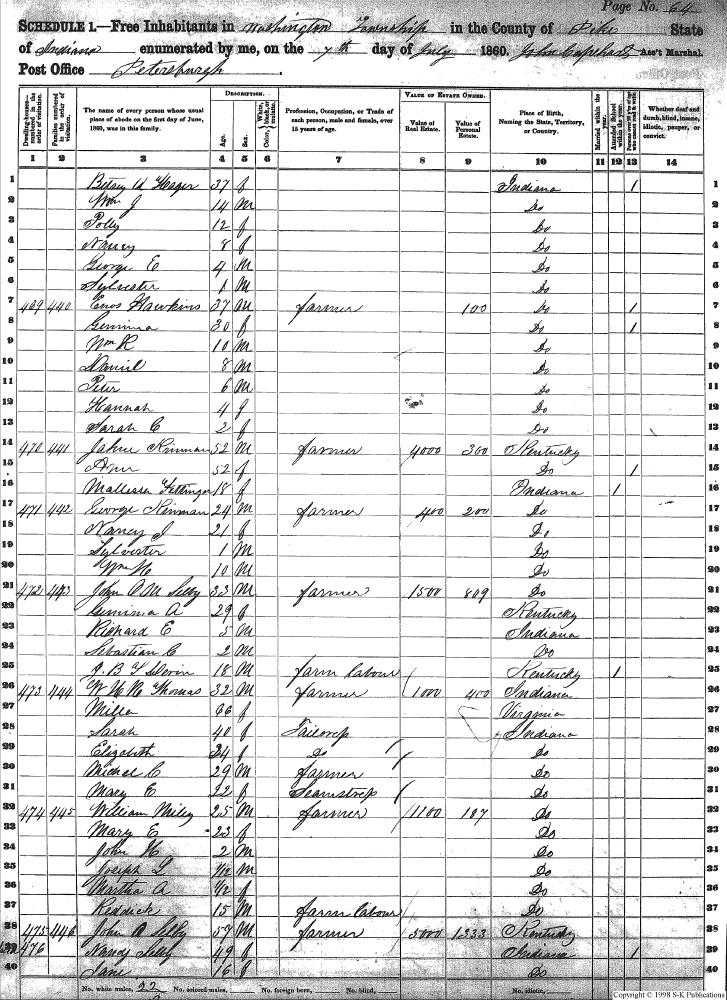 Page No. 64
SCHEDULE 1.—Free Inhabitants in Washington Township in the County of Pike State
of Indiana enumerated by me, on the 7th day of July 1860. John Capehart Ass't Marshal.
Post Office Petersburgh.
Dwelling-houses—numbered in the order of visitation.
Families numbered in the order of visitation.
The name of every person whose usual place of abode on the first day of June, 1860, was in this family.
DESCRIPTION.
Age.
Sex.
Color, White, black, or mulatto.
Profession, Occupation, or Trade of each person, male and female, over 15 years of age.
VALUE OF ESTATE OWNED.
Value of Real Estate.
Value of Personal Estate.
Place of Birth, Naming the State, Territory, or Country.
Married within the year.
Attended School within the year.
Whether deaf and dumb, blind, insane, idiotic, pauper, or convict.
1 2 3 4 5 6 7 8 9 10 11 12 13 14
1 Betsey A Hager 37 f Indiana 1 1
2 Wm J 14 M Do 2
3 Polly 12 f Do 3
4 Nancy 8 f Do 4
5 George E 4 M Do 5
6 Sylvester 1 M Do 6
7 469 440 Enos Hawkins 37 M farmer 100 Do 1 7
8 Gemima 30 f Do 1 8
9 Wm R 10 M Do 9
10 Daniel 8 M Do 10
11 Peter 6 M Do 11
12 Hannah 4 f Do 12
13 Sarah C 2 f Do 13
14 470 441 Kinman 52 M farmer 4000 300 Kentucky 14
15 Ann 52 f Do 1 15
16 Mallessa 18 f Indiana 1 16
17 471 442 George Kinman 24 M farmer 400 200 Do 17
18 Nancy J 21 f Do 18
19 Sylvester 1 M Do 19
20 Wm H 10 M Do 20
21 472 443 John C M Selby 33 M farmer 1500 809 Do 21
22 Gemima A 29 f Kentucky 22
23 Richard E 5 M Indiana 23
24 Sebastian C 2 M Do 24
25 J B T Devin 18 M farm labour Kentucky 1 25
26 473 444 W H H Thomas 32 M farmer 1000 400 Indiana 26
27 66 f Virginia 27
28 Sarah 40 f Tailoress Indiana 28
29 Elizabeth 34 f Do Do 29
30 Michel C 29 M farmer Do 30
31 Mary E 22 f Seamstress Do 31
32 474 445 William Miley 25 M farmer 1100 187 Do 32
33 Mary E 23 f Do 33
34 John H 2 M Do 34
35 Joseph L M Do 35
36 Martha A f Do 36
37 Reddick 15 M farm labour Do 37
38 475 446 John Selby 57 M farmer 5000 1333 Kentucky 38
39 476 Nancy Selby 49 f Indiana 1 39
40 Jane 16 f Do 40
No. white males, 22 No. colored males, No. foreign born, No. blind, No. idiotic,
Copyright © 1998 S-K Publications